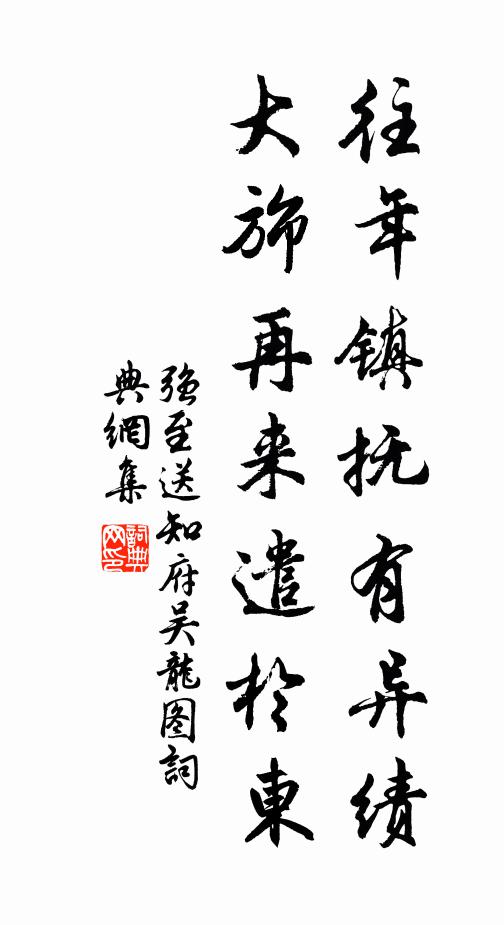 往年镇抚有异绩
大斾再来遣於東
强至送知府吴龍图詞
典網集
詞典
网印